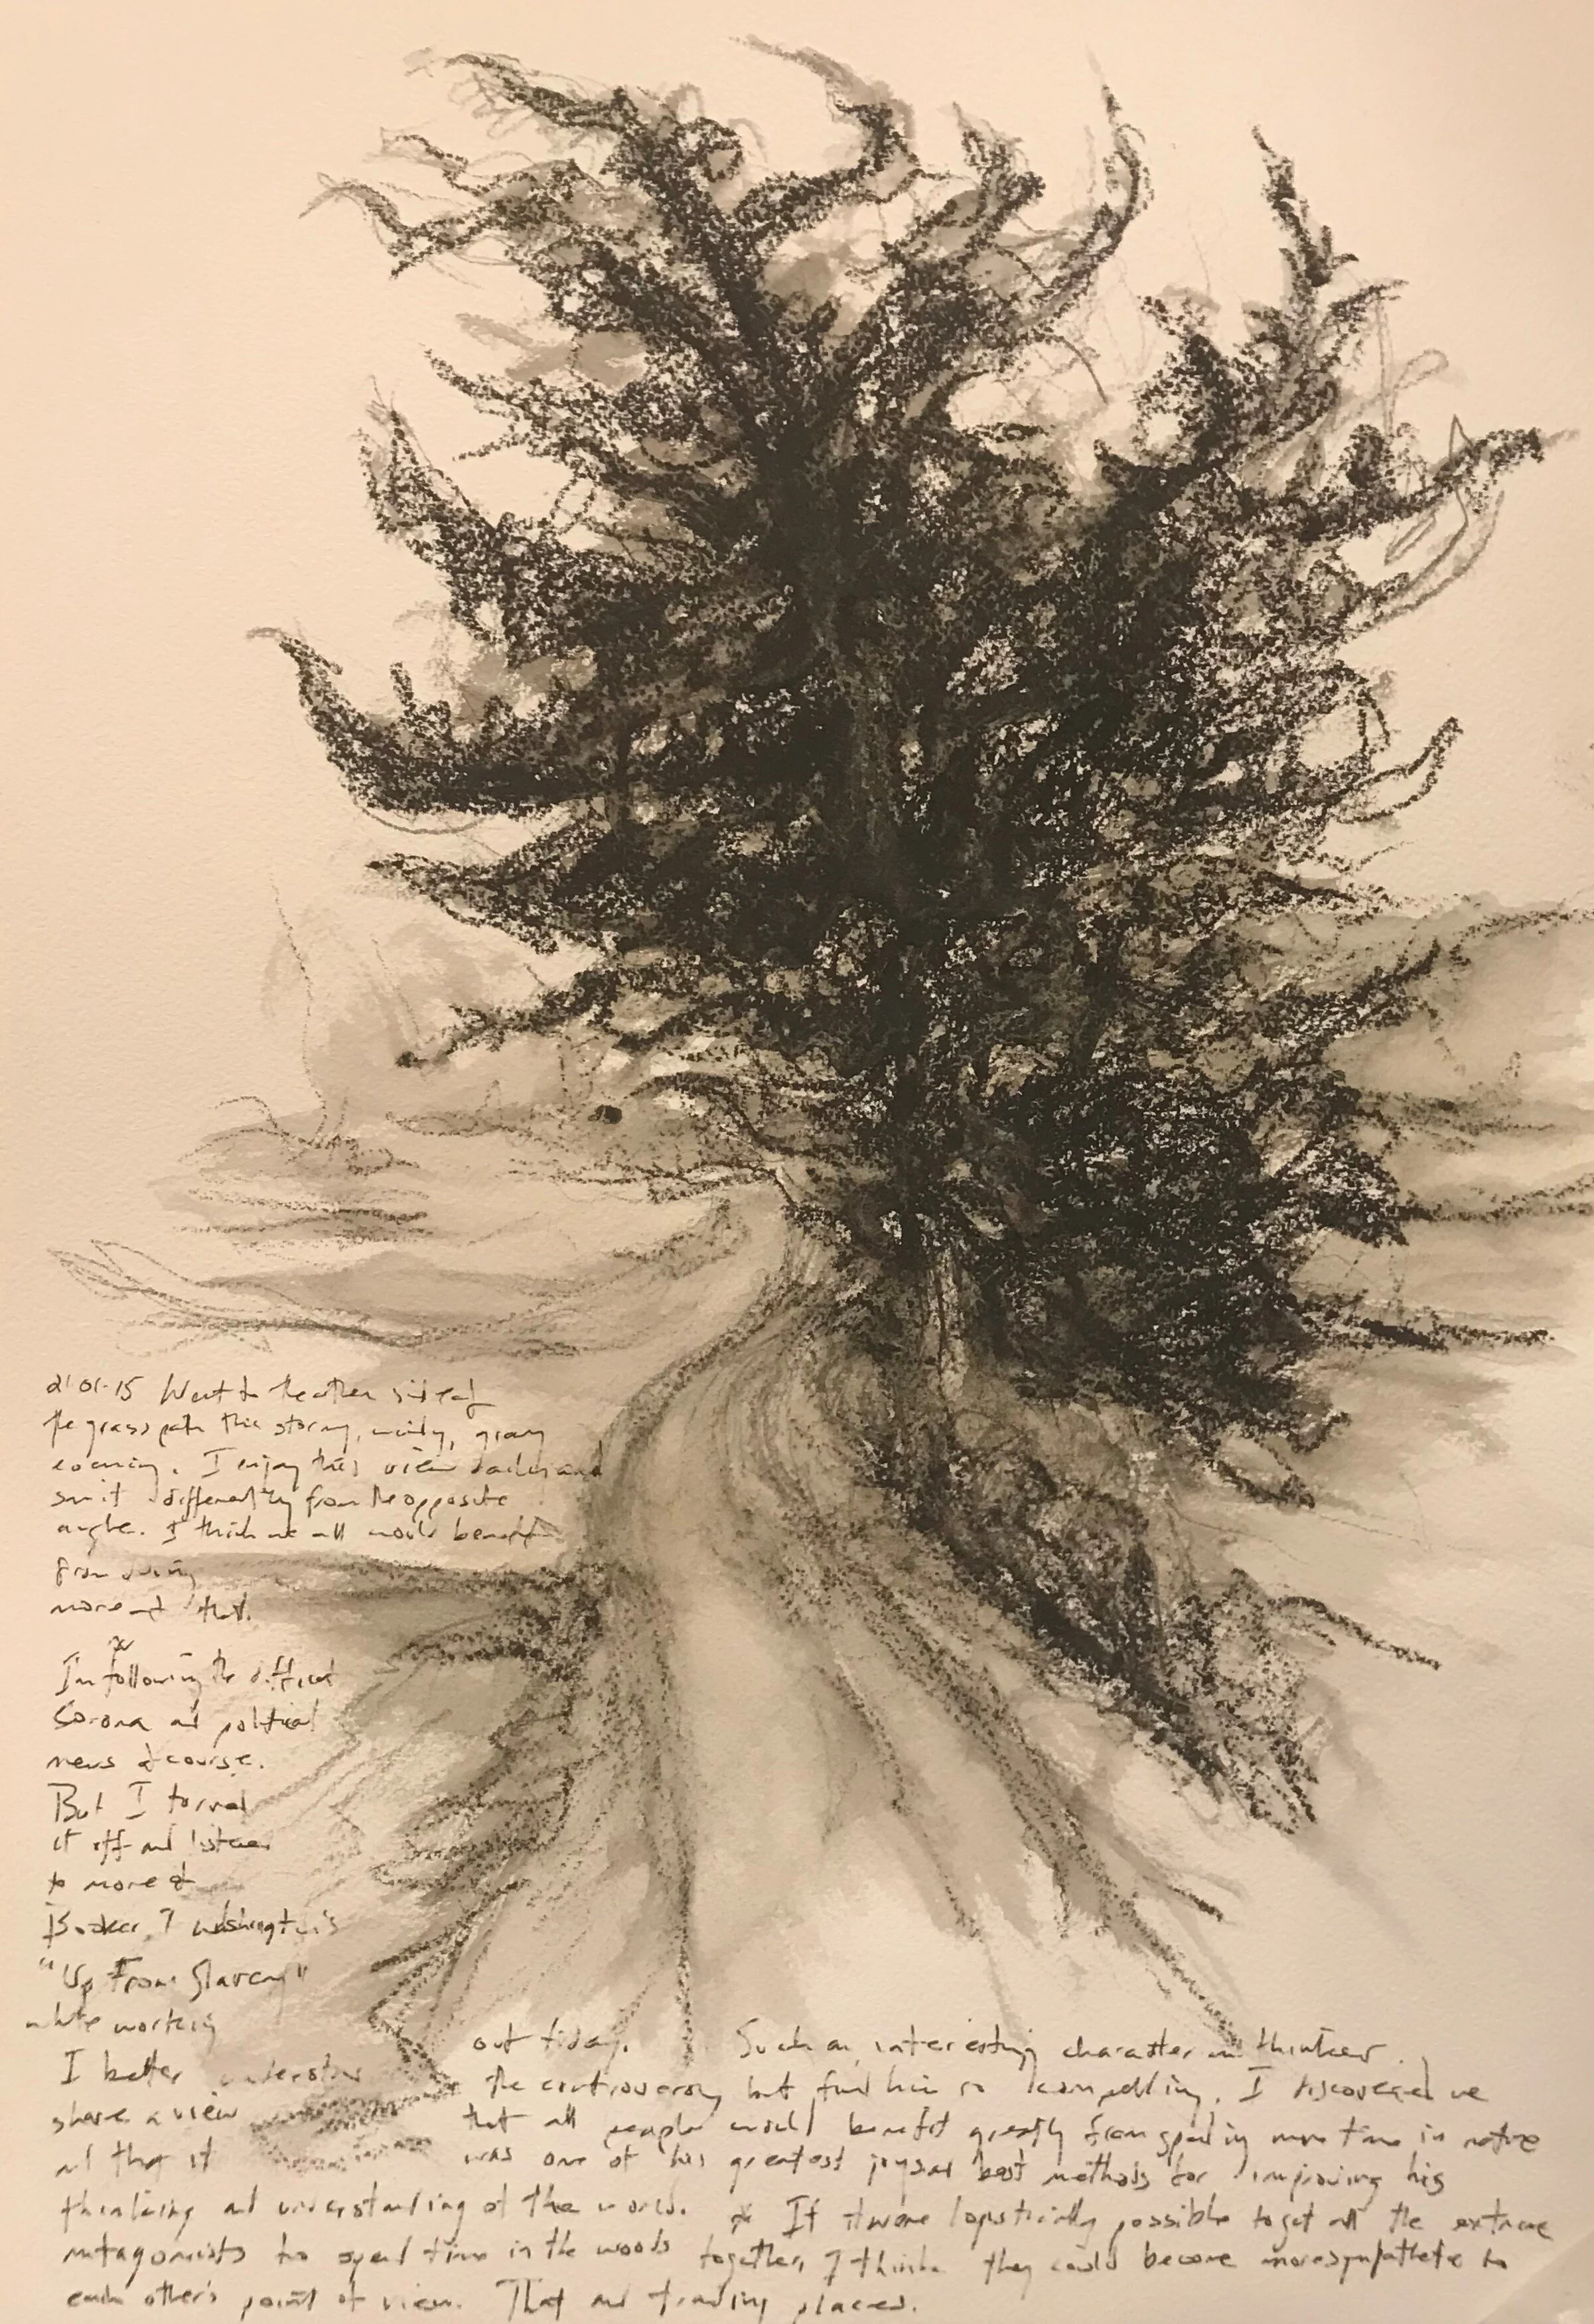 21-01-15 Went to the other side of
the grass path this stormy, windy, gray
evening. I enjoy this view daily and
saw it differently from the opposite
angle. I think we all would benefit
from doing
more of that.
I'm following the difficult
Corona and political
news of course.
But I turned
it off and listened
to more of
Booker T Washington's
"Up From Slavery"
while working
out today. Such an interesting character and thinker.
I better understand
the controversy but find him so compelling. I discovered we
share a view
that all people would benefit greatly from spending more time in nature
and that it
was one of his greatest joys and best methods for improving his
thinking and understanding of the world. * If it were logistically possible to get all the extreme
antagonists to spend time in the woods together, I think they could become more sympathetic to
each other's point of view. That and trading places.